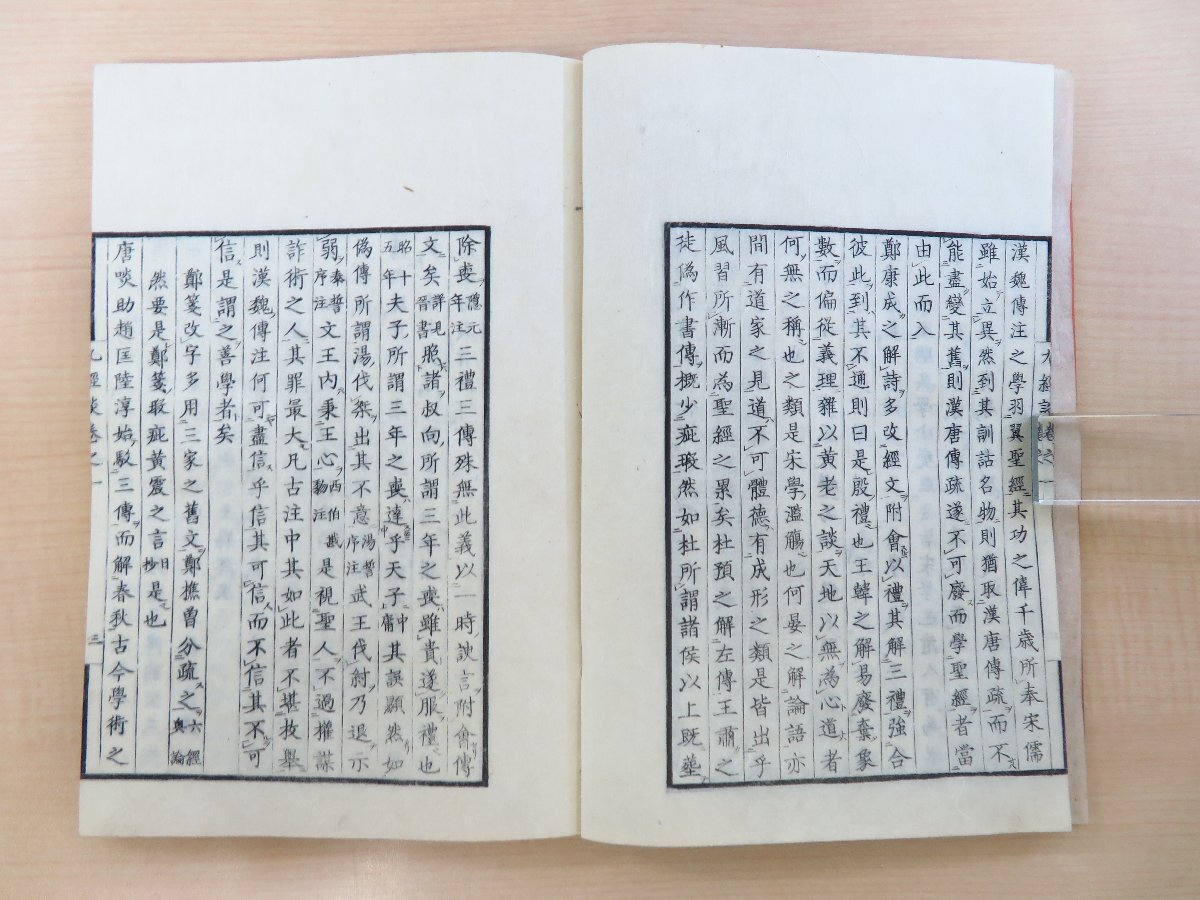 漢魏傳注之學羽翼聖經其功之偉千歳所奉宋儒
雖始立異然到其訓詁名物則猶取漢唐傳疏而不
能盡變其舊則漢唐傳疏遂不可廢而學聖經者當
由此而入
鄭康成之解詩多改經文附會以禮其解三禮強合
彼此到其不通則曰是殷禮也王韓之解易廢棄象
數而偏從義理雜以黃老之談天地以無為心道者
何無之稱也之類是宋學濫觴也何晏之解論語亦
間有道家之見道不可體德有成形之類是皆出乎
風習所漸而為聖經之累矣杜預之解左傳王肅之
徒偽作書傳概少疵瑕然如杜所謂諸侯以上既葬
除喪隱元年注三禮三傳殊無此義以一時諛言附會傳
文矣詳見晉書照諸叔向所謂三年之喪雖貴遂服禮也
昭十五年夫子所謂三年之喪達乎天子中庸其誤顯然如
偽傳所謂湯伐桀出其不意湯誓序注武王伐紂乃退示
弱泰誓序注文王內秉王心西伯戡黎注是視聖人不過權謀
詐術之人其罪最大凡古注中其如此者不堪枚舉
則漢魏傳注何可盡信乎信其可信而不信其不可
信是謂之善學者矣
鄭箋改字多用三家之舊文鄭樵曾分疏之六經奧論
然要是鄭箋瑕疵黃震之言日抄是也
唐啖助趙匡陸淳始駁三傳而解春秋古今學術之
九經談卷之一
三